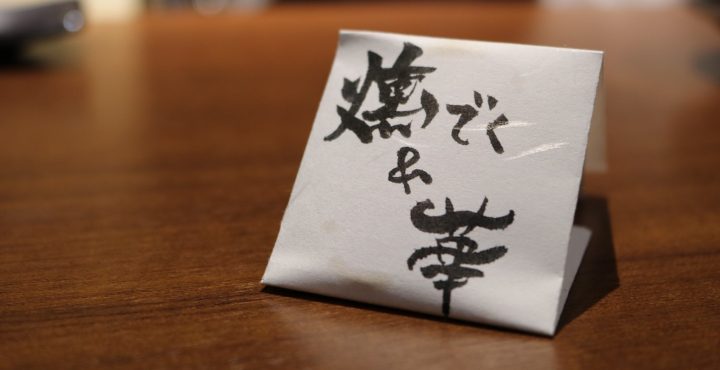 燻でく
の
華